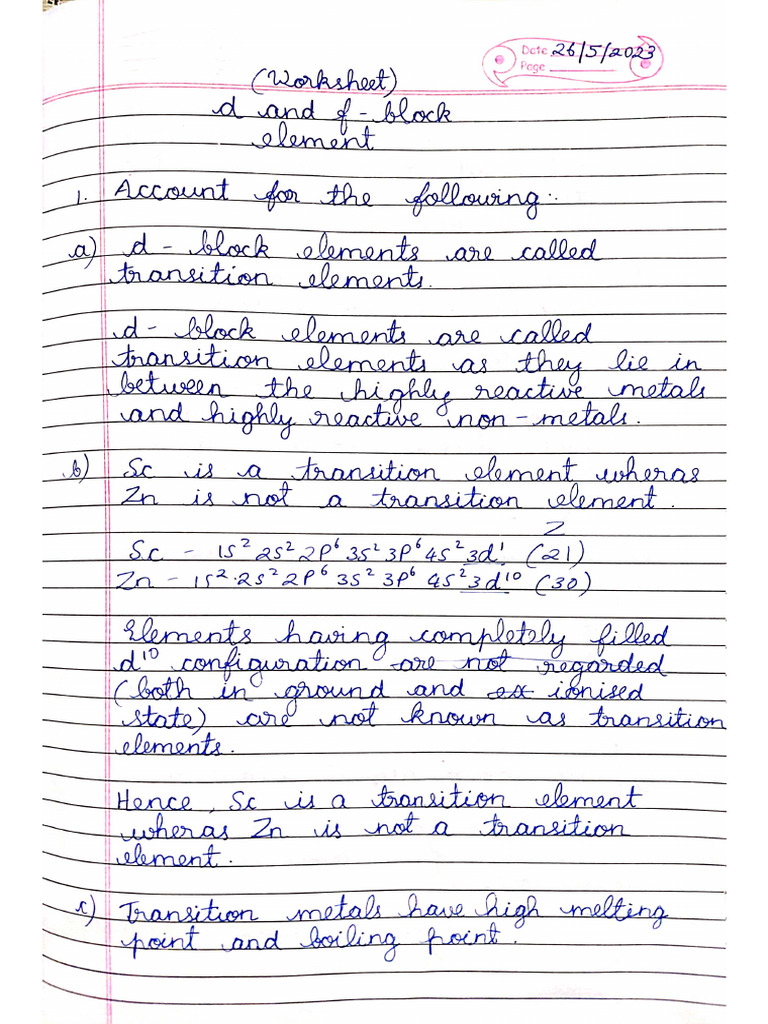 Date 26/5/2023
Page
(Worksheet)
d and f - block
element
1. Account for the following:
a) d - block elements are called
transition elements.
d - block elements are called
transition elements as they lie in
between the highly reactive metals
and highly reactive non - metals.
b) Sc is a transition element wheras
Zn is not a transition element.
Z
Sc - 1s² 2s² 2p⁶ 3s² 3p⁶ 4s² 3d¹ (21)
Zn - 1s² 2s² 2p⁶ 3s² 3p⁶ 4s² 3d¹⁰ (30)
Elements having completely filled
d¹⁰ configuration are not regarded
(both in ground and ex ionised
state) are not known as transition
elements.
Hence, Sc is a transition element
wheras Zn is not a transition
element.
c) Transition metals have high melting
point and boiling point.